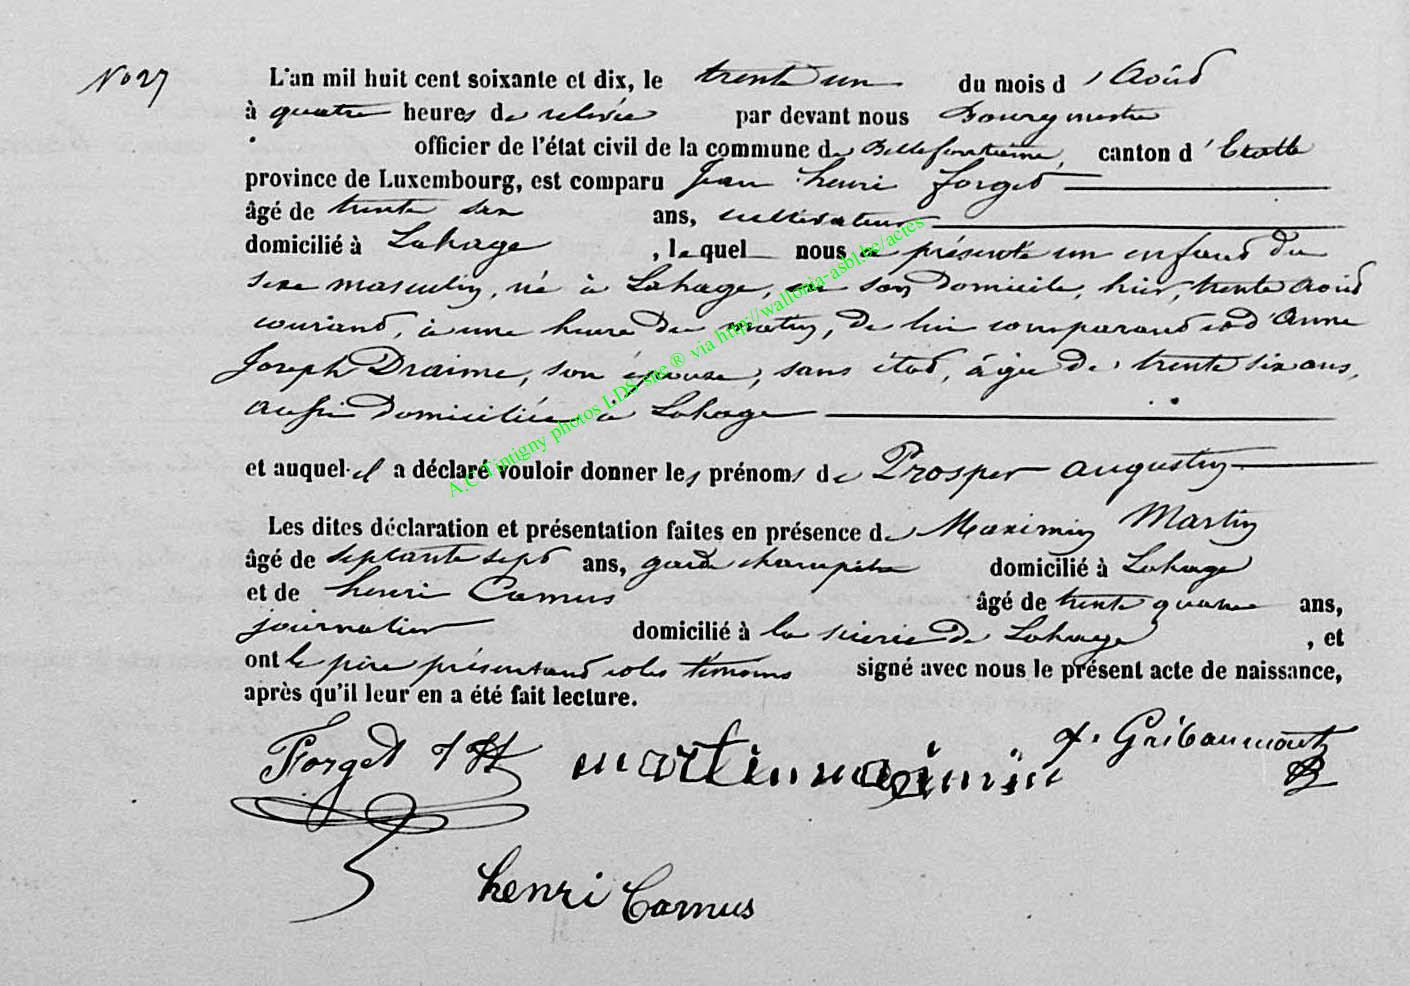 No 27
L'an mil huit cent soixante et dix, le trente un du mois d'Août
à quatre heures de relevée par devant nous Bourgmestre
officier de l'état civil de la commune de Bellefontaine, canton d'Etalle
province de Luxembourg, est comparu Jean henri forget
âgé de trente six ans, cultivateur
domicilié à Lahage, lequel nous a présenté un enfant du
sexe masculin, né à Lahage, en son domicile, hier, trente août
courant, à une heure du matin, de lui comparant et d'Anne
Joseph Draime, son épouse, sans état, âgée de trente six ans,
aussi domiciliée à Lahage
et auquel il a déclaré vouloir donner les prénoms de Prosper augustin
Les dites déclaration et présentation faites en présence de Maximin Martin
âgé de septante sept ans, garde champêtre domicilié à Lahage
et de henri Camus âgé de trente quatre ans,
journalier domicilié à la scierie de Lahage, et
ont le père présentant et les témoins signé avec nous le présent acte de naissance,
après qu'il leur en a été fait lecture.
Forget J H martin maximin f. Gribaumont
henri Camus
A.C.Tintigny photos LDS-site ® via http://wallonia-asbl.be/actes